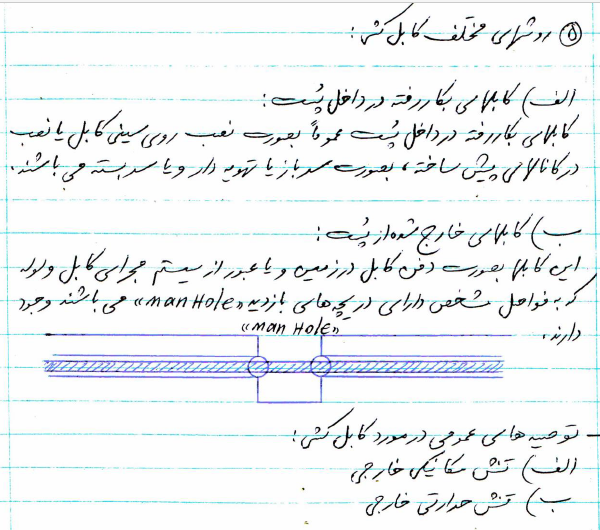 ۵) روشهای مختلف کابل کشی:
الف) کابلهای بکار رفته در داخل پست:
کابلهای بکار رفته در داخل پست عموماً بصورت نصب روی سینی کابل یا نصب
در کانالهای پیش ساخته، بصورت سرباز یا تهویه دار و یا سربسته می باشند.
ب) کابلهای خارج شده از پست:
این کابلها بصورت دفن کابل در زمین و یا عبور از سیستم مجرای کابل و لوله
که به فواصل مشخص دارای دریچه های بازدید «man Hole» می باشند وجود
دارند.
«man Hole»
- توصیه های عمومی در مورد کابل کشی:
الف) تنش مکانیکی خارجی
ب) تنش حرارتی خارجی